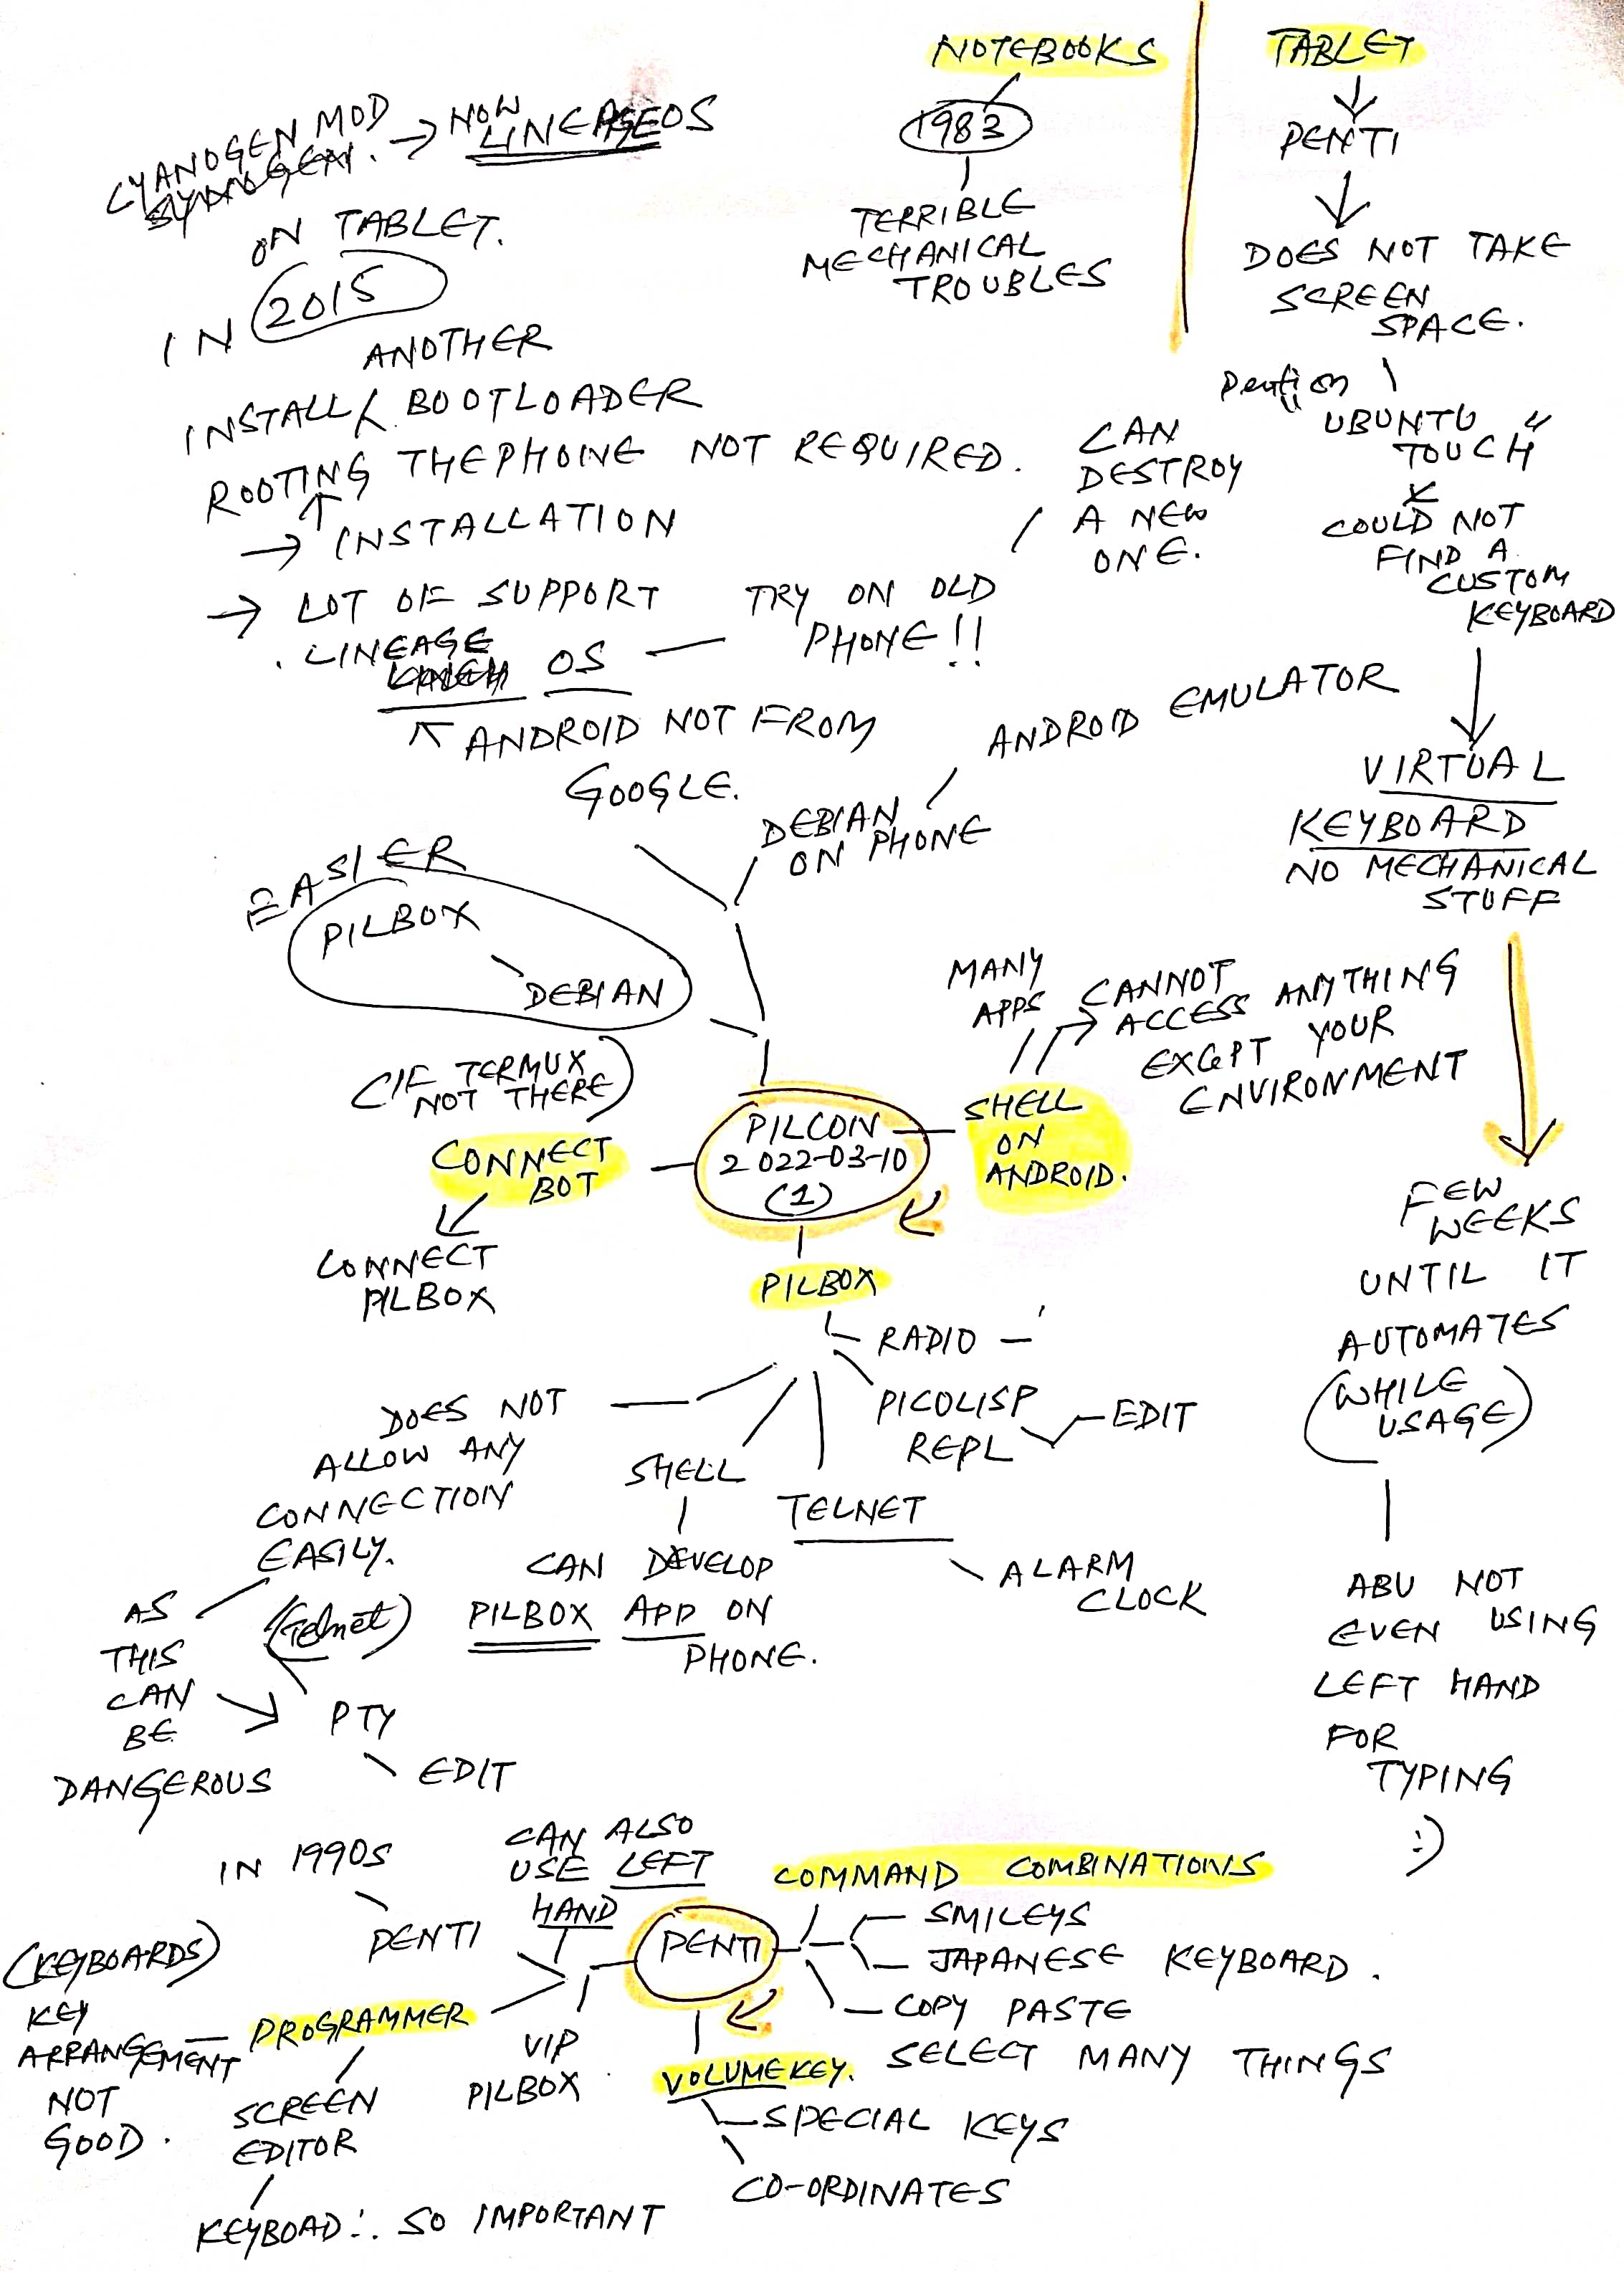 NOTEBOOKS
1983
TERRIBLE
MECHANICAL
TROUBLES
TABLET
PENTI
DOES NOT TAKE
SCREEN
SPACE.
Penti on
"UBUNTU
TOUCH"
COULD NOT
FIND A
CUSTOM
KEYBOARD
VIRTUAL
KEYBOARD
NO MECHANICAL
STUFF
FEW
WEEKS
UNTIL IT
AUTOMATES
(WHILE
USAGE)
ABU NOT
EVEN USING
LEFT HAND
FOR
TYPING
:)
CYANOGEN MOD → NOW LINEAGEOS
ON TABLET.
IN 2015
ANOTHER
INSTALL BOOTLOADER
ROOTING THE PHONE NOT REQUIRED.
→ INSTALLATION
→ LOT OF SUPPORT
. LINEAGE
OS — TRY ON OLD
PHONE!!
CAN
DESTROY
A NEW
ONE.
ANDROID NOT FROM
GOOGLE.
DEBIAN
ON PHONE
ANDROID EMULATOR
EASIER
PILBOX
DEBIAN
(IF TERMUX
NOT THERE)
CONNECT
BOT
CONNECT
PILBOX
PILCON
2022-03-10
(1)
SHELL
ON
ANDROID.
MANY
APPS
CANNOT
ACCESS ANYTHING
EXCEPT YOUR
ENVIRONMENT
PILBOX
RADIO —
PICOLISP
REPL
EDIT
TELNET
ALARM
CLOCK
SHELL
CAN DEVELOP
PILBOX APP ON
PHONE.
DOES NOT
ALLOW ANY
CONNECTION
EASILY.
(Telnet)
AS
THIS
CAN
BE
DANGEROUS
PTY
EDIT
PENTI
COMMAND COMBINATIONS
SMILEYS
JAPANESE KEYBOARD.
COPY PASTE
SELECT MANY THINGS
VOLUMEKEY.
SPECIAL KEYS
CO-ORDINATES
CAN ALSO
USE LEFT
HAND
IN 1990S
PENTI
VIP
PILBOX
PROGRAMMER
(KEYBOARDS)
KEY
ARRANGEMENT
NOT
GOOD.
SCREEN
EDITOR
KEYBOAD ∴ SO IMPORTANT